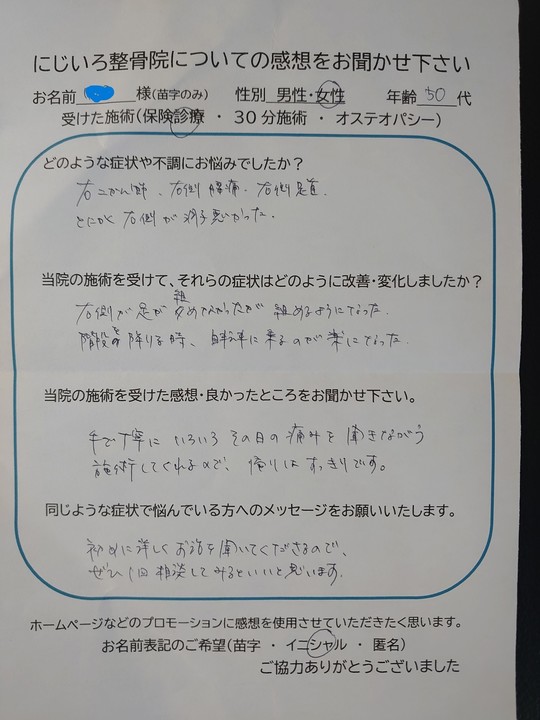 にじいろ整骨院についての感想をお聞かせ下さい
お名前 様(苗字のみ) 性別 男性・女性 年齢 50 代
受けた施術(保険診療 ・ 30分施術 ・ オステオパシー)
どのような症状や不調にお悩みでしたか?
右こかん節、右側腰痛、右側足首、
とにかく右側が調子悪かった。
当院の施術を受けて、それらの症状はどのように改善・変化しましたか?
右側が足が組めなかったが組めるようになった。
階段を降りる時、自転車に乗るのが楽になった。
当院の施術を受けた感想・良かったところをお聞かせ下さい。
手で丁寧にいろいろその日の痛みを聞きながら
施術してくれるので、帰りはすっきりです。
同じような症状で悩んでいる方へのメッセージをお願いいたします。
初めに詳しくお話を聞いてくださるので、
ぜひ1回相談してみるといいと思います。
ホームページなどのプロモーションに感想を使用させていただきたく思います。
お名前表記のご希望(苗字 ・ イニシャル ・ 匿名)
ご協力ありがとうございました